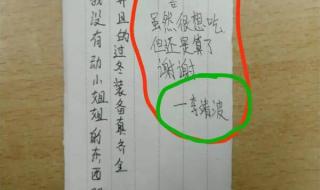 我没有动小姐姐的东西
且的过冬装备真齐全
虽然很想吃
但还是算了
谢谢